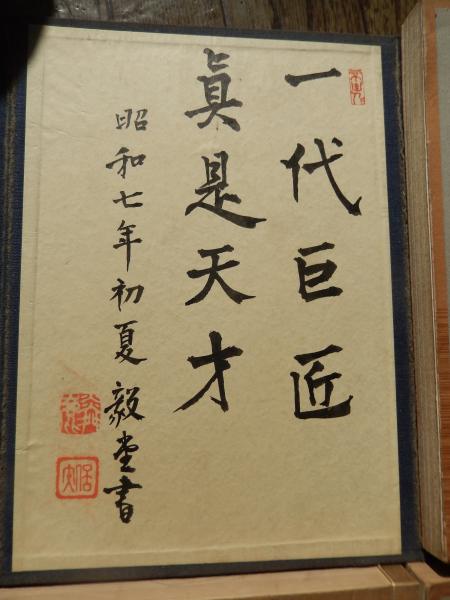 一代巨匠
眞是天才
昭和七年初夏 毅堂書